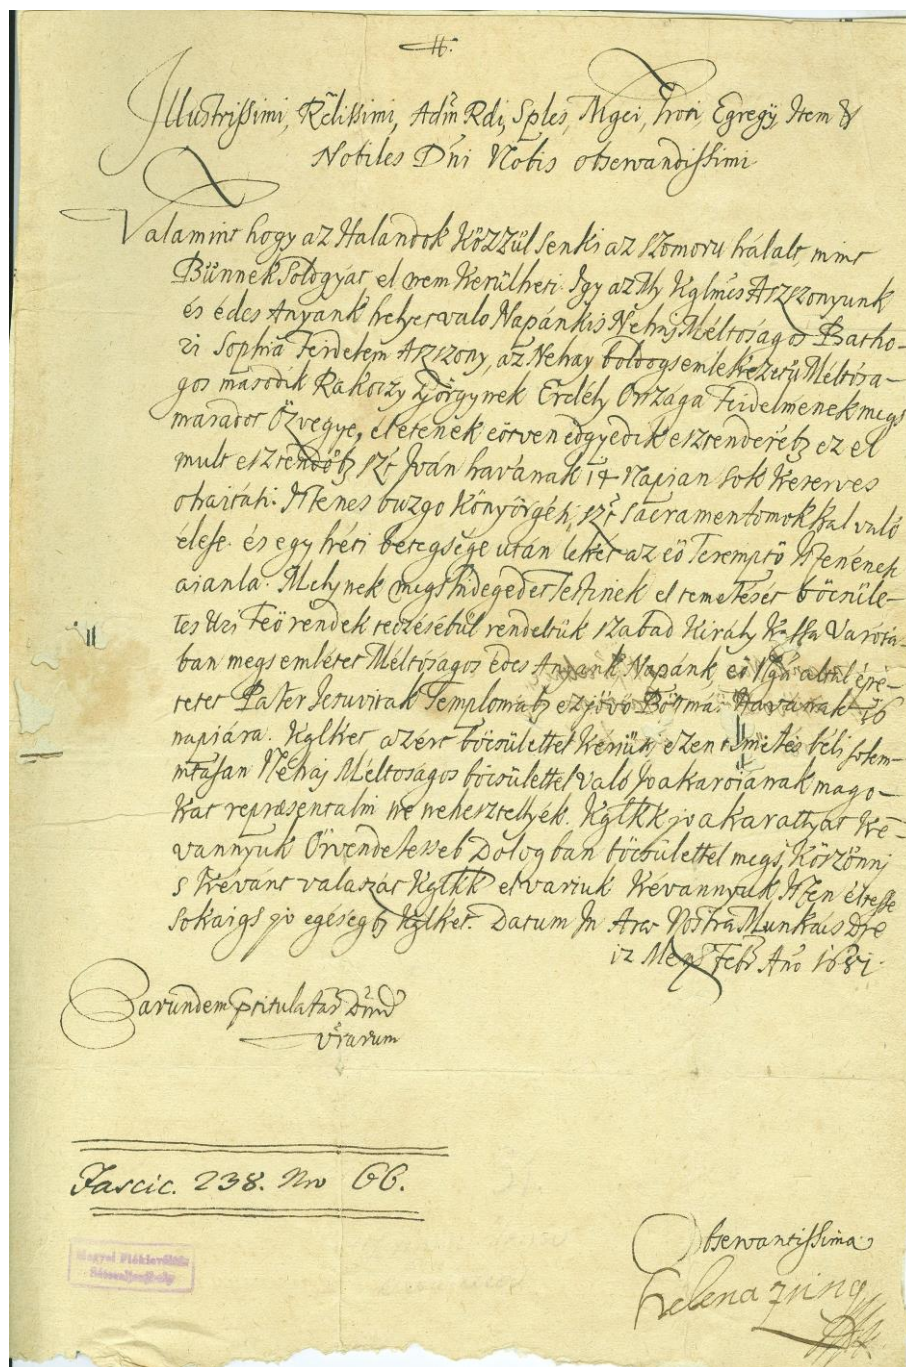 Illustrissimi, Rdissimi, Adm Rdi, Sples, Mgci, Groti, Egregy, Item &
Nobiles Dni Nobis observandissimi
Valamint hogy az Halandok Közzül senki az szomoru halált, mint
Bünnek Soldgyát, el nem kerülheti. Igy az My Kglmes Aszszonyunk
és édes Anyank helyet való Napánkis Nehaj Méltoságos Batho-
ri Sophia Feidelem Aszszony, az Nehay boldogsemlekezetü Méltósa-
gos második Rakoczy Györgynek Erdély Országa Feidelmenek megs
maradot Özvegye, életének eötven edgyedik esztendeéb ez el
mult esztendőb szt Iván havának 14 Napian sok keserves
ohaitati. Istenes buzgo Könyörgési, szt Sacramentomokkal való
élese és egy héti betegsége után lelkét az eö Teremptö Istenének
aianla. Melynek megs hidegedet Testinek el temetését böcsüle-
tes Uri Feö rendek teczésébül rendeltük szabad Király Kassa Varosa-
ban megs emlétet Méltóságos édes Anyank Napánk eö Nga által épé-
tetet Pater Jesuviták Templomáb ez jövö Bötmás Havanak 16
napiára. Kglket azért böcsülettel kériük, ezen temetés béli solem-
nitásan Néhaj Méltoságos böcsülettel való Joakaroianak mago-
kat repræsentalni ne nehesztellyék. Kglkk jo akarattyat ké-
vannyuk Örvendetesseb Dologban böcsülettel megs Köszönni
s kévánt valaszát Kglkk el variuk kévannyuk Isten éltesse
sokaigs jo egéségb Kglket. Datum In Arce Nostra Munkács Die
12 Mens Febr Ano 1681.
Earundem Ptitulatar Dnd
Vrarum
Fascic. 238. Nro 66.
Magyar Fióklevéltár
Sátoraljaújhely
Observantissima
Helena Zrini